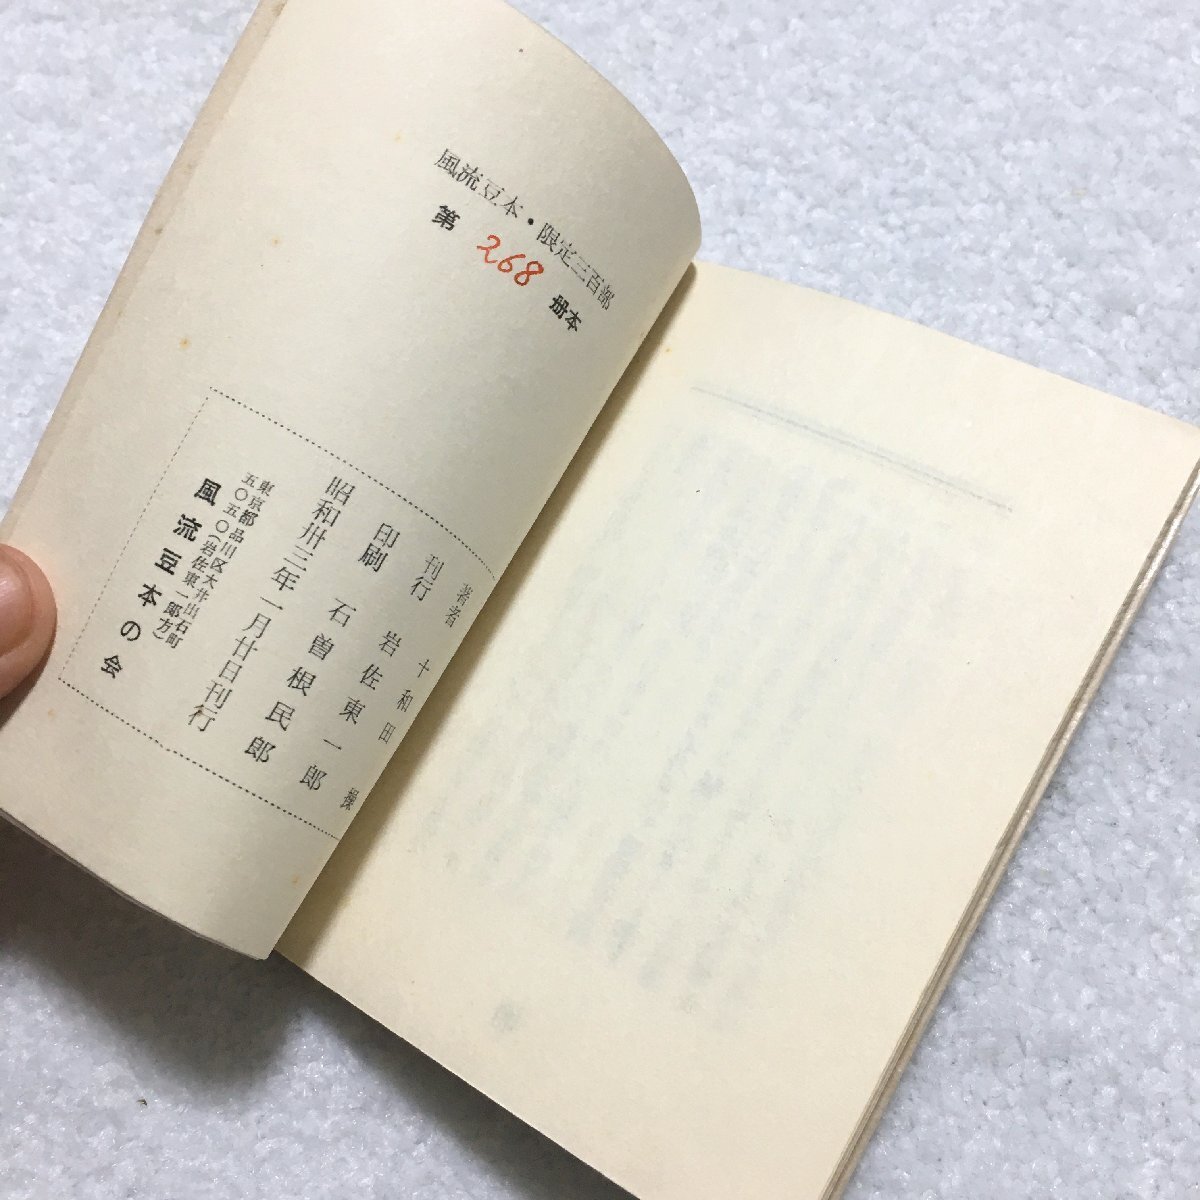 風流豆本・限定三百部
第 268 册本
著者 十和田 操
刊行 岩佐東一郎
印刷 石曽根民郎
昭和卅三年一月廿日刊行
東京都品川区大井出石町
五〇五〇(岩佐東一郎方)
風流豆本の会